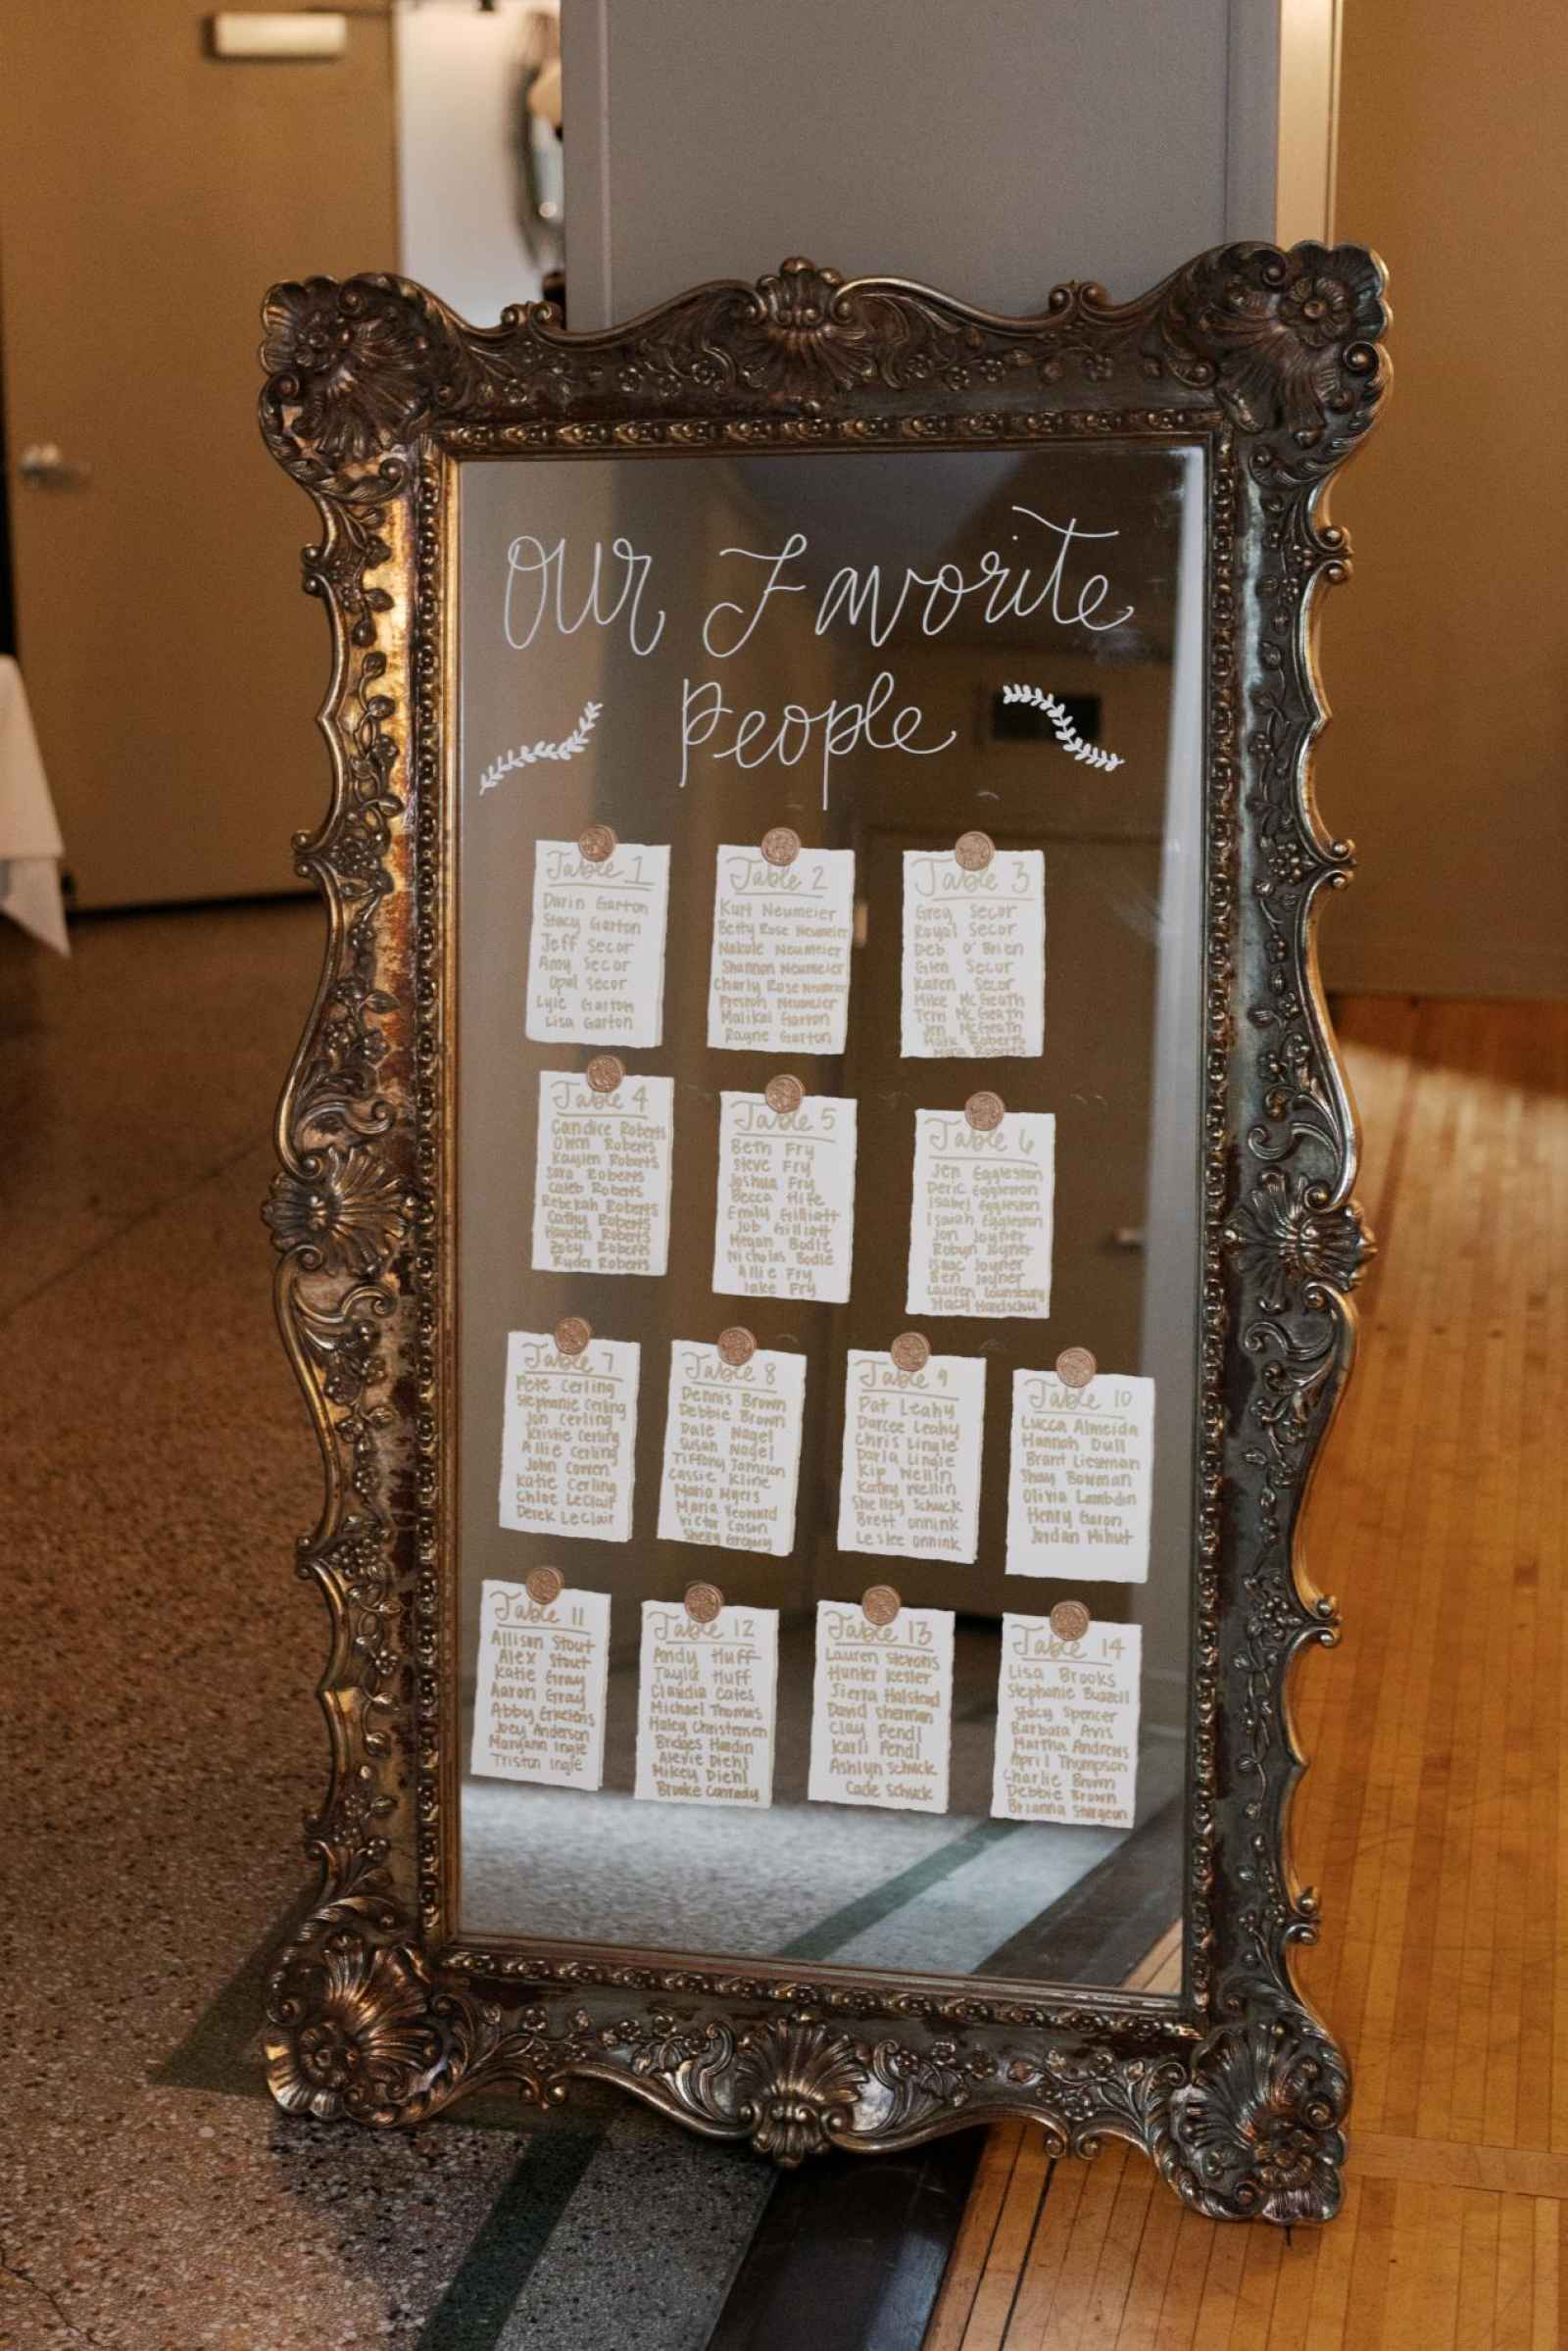 our Favorite
People
Table 1
Darin Garton
Stacy Garton
Jeff Secor
Amy Secor
Opal Secor
Lyle Garton
Lisa Garton
Table 2
Kurt Neumeier
Betty Rose Neumeier
Nakole Neumeier
Shannon Neumeier
Charly Rose Neumeier
Preston Neumeier
Malikai Garton
Rayne Garton
Table 3
Greg Secor
Royal Secor
Deb O'Brien
Glen Secor
Karen Secor
Mike McGrath
Terri McGrath
Jen McGrath
Mark Roberts
Roberts
Table 4
Candice Roberts
Owen Roberts
Kaylen Roberts
Sara Roberts
Caleb Roberts
Rebekah Roberts
Cathy Roberts
Hayden Roberts
Zoey Roberts
Ryder Roberts
Table 5
Beth Fry
Steve Fry
Joshua Fry
Becca Hife
Emily Gilliatt
Job Gilliatt
Megan Bodie
Nicholas Bodie
Allie Fry
Jake Fry
Table 6
Jen Eggleston
Deric Eggleston
Isabel Eggleston
Isaiah Eggleston
Jon Joyner
Robyn Joyner
Isaac Joyner
Ben Joyner
Lauren Lounsbury
Stacy Handschu
Table 7
Pete Cerling
Stephanie Cerling
Jon Cerling
Kristie Cerling
Allie Cerling
John Cowen
Katie Cerling
Chloe LeClair
Derek LeClair
Table 8
Dennis Brown
Debbie Brown
Dale Nagel
Susan Nagel
Tiffany Jamison
Cassie Kline
Maria Myers
Maria Yeoward
Victor Cason
Shelly Gregory
Table 9
Pat Leahy
Darcee Leahy
Chris Lingle
Darla Lingle
Kip Wellin
Kathy Wellin
Shelley Schuck
Brett Onnink
Leslee Onnink
Table 10
Lucca Almeida
Hannah Dull
Brant Liesman
Shay Bowman
Olivia Lambdin
Henry Garon
Jordan Mihut
Table 11
Allison Stout
Alex Stout
Katie Gray
Aaron Gray
Abby
Joey Anderson
Maryann Ingle
Triston Ingle
Table 12
Andy Huff
Tayla Huff
Claudia Cates
Michael Thomas
Haley Christensen
Bridges Hardin
Alexie Diehl
Mikey Diehl
Brooke Conrady
Table 13
Lauren Stevens
Hunter Kesler
Sierra Halstead
David Sherman
Clay Pendl
Karli Pendl
Ashlyn Schuck
Cade Schuck
Table 14
Lisa Brooks
Stephanie Buzzell
Stacy Spencer
Barbara Avis
Martha Andrews
April Thompson
Charlie Brown
Debbie Brown
Brianna Sturgeon